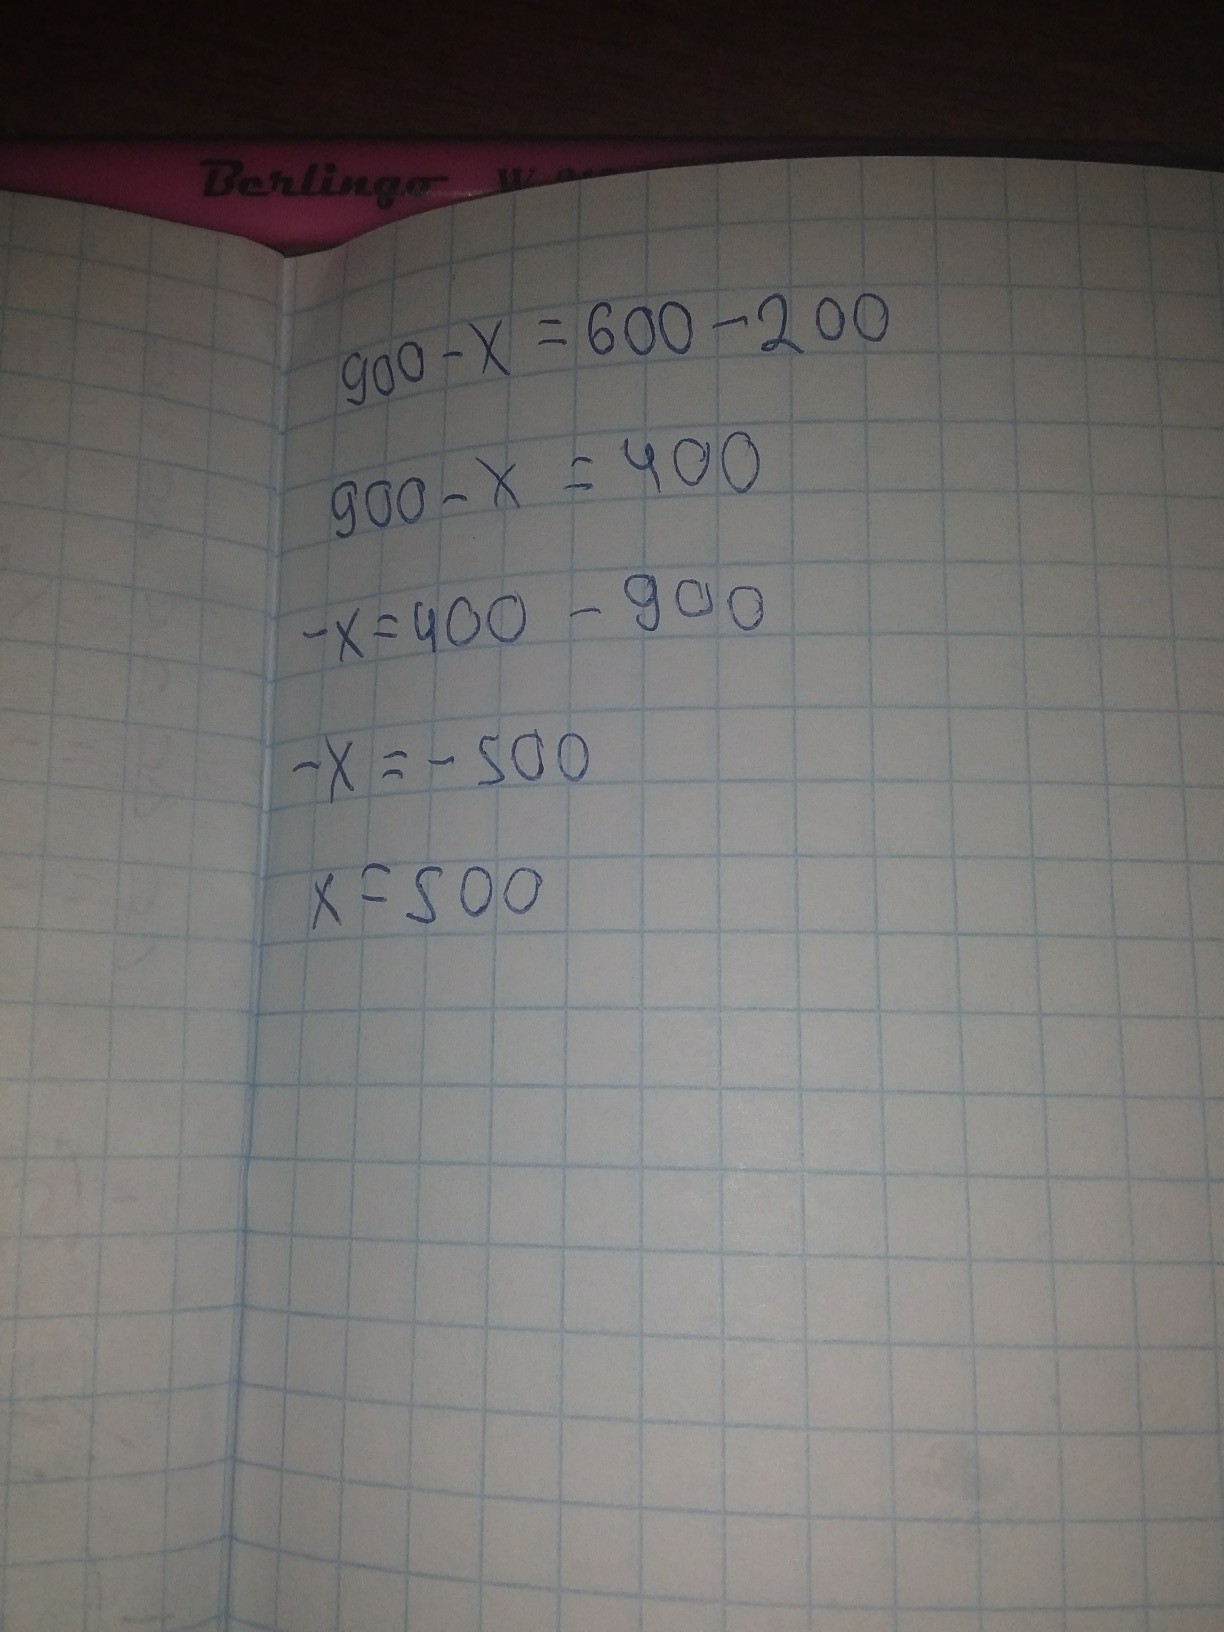 Berlingo
900 - x = 600 - 200
900 - x = 400
-x = 400 - 900
-x = - 500
x = 500